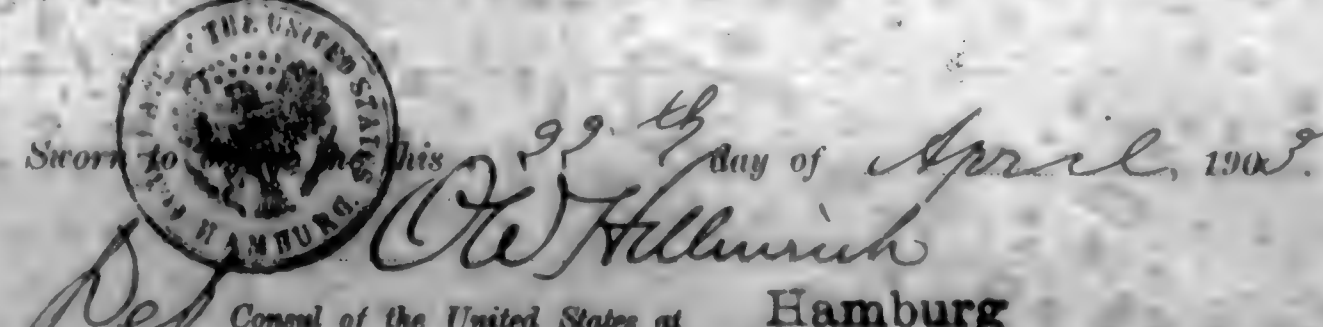 THE UNITED STATES
HAMBURG.
Sworn to before me this 22th day of April, 1903.
O W Hellmrich
Dep Consul of the United States at Hamburg